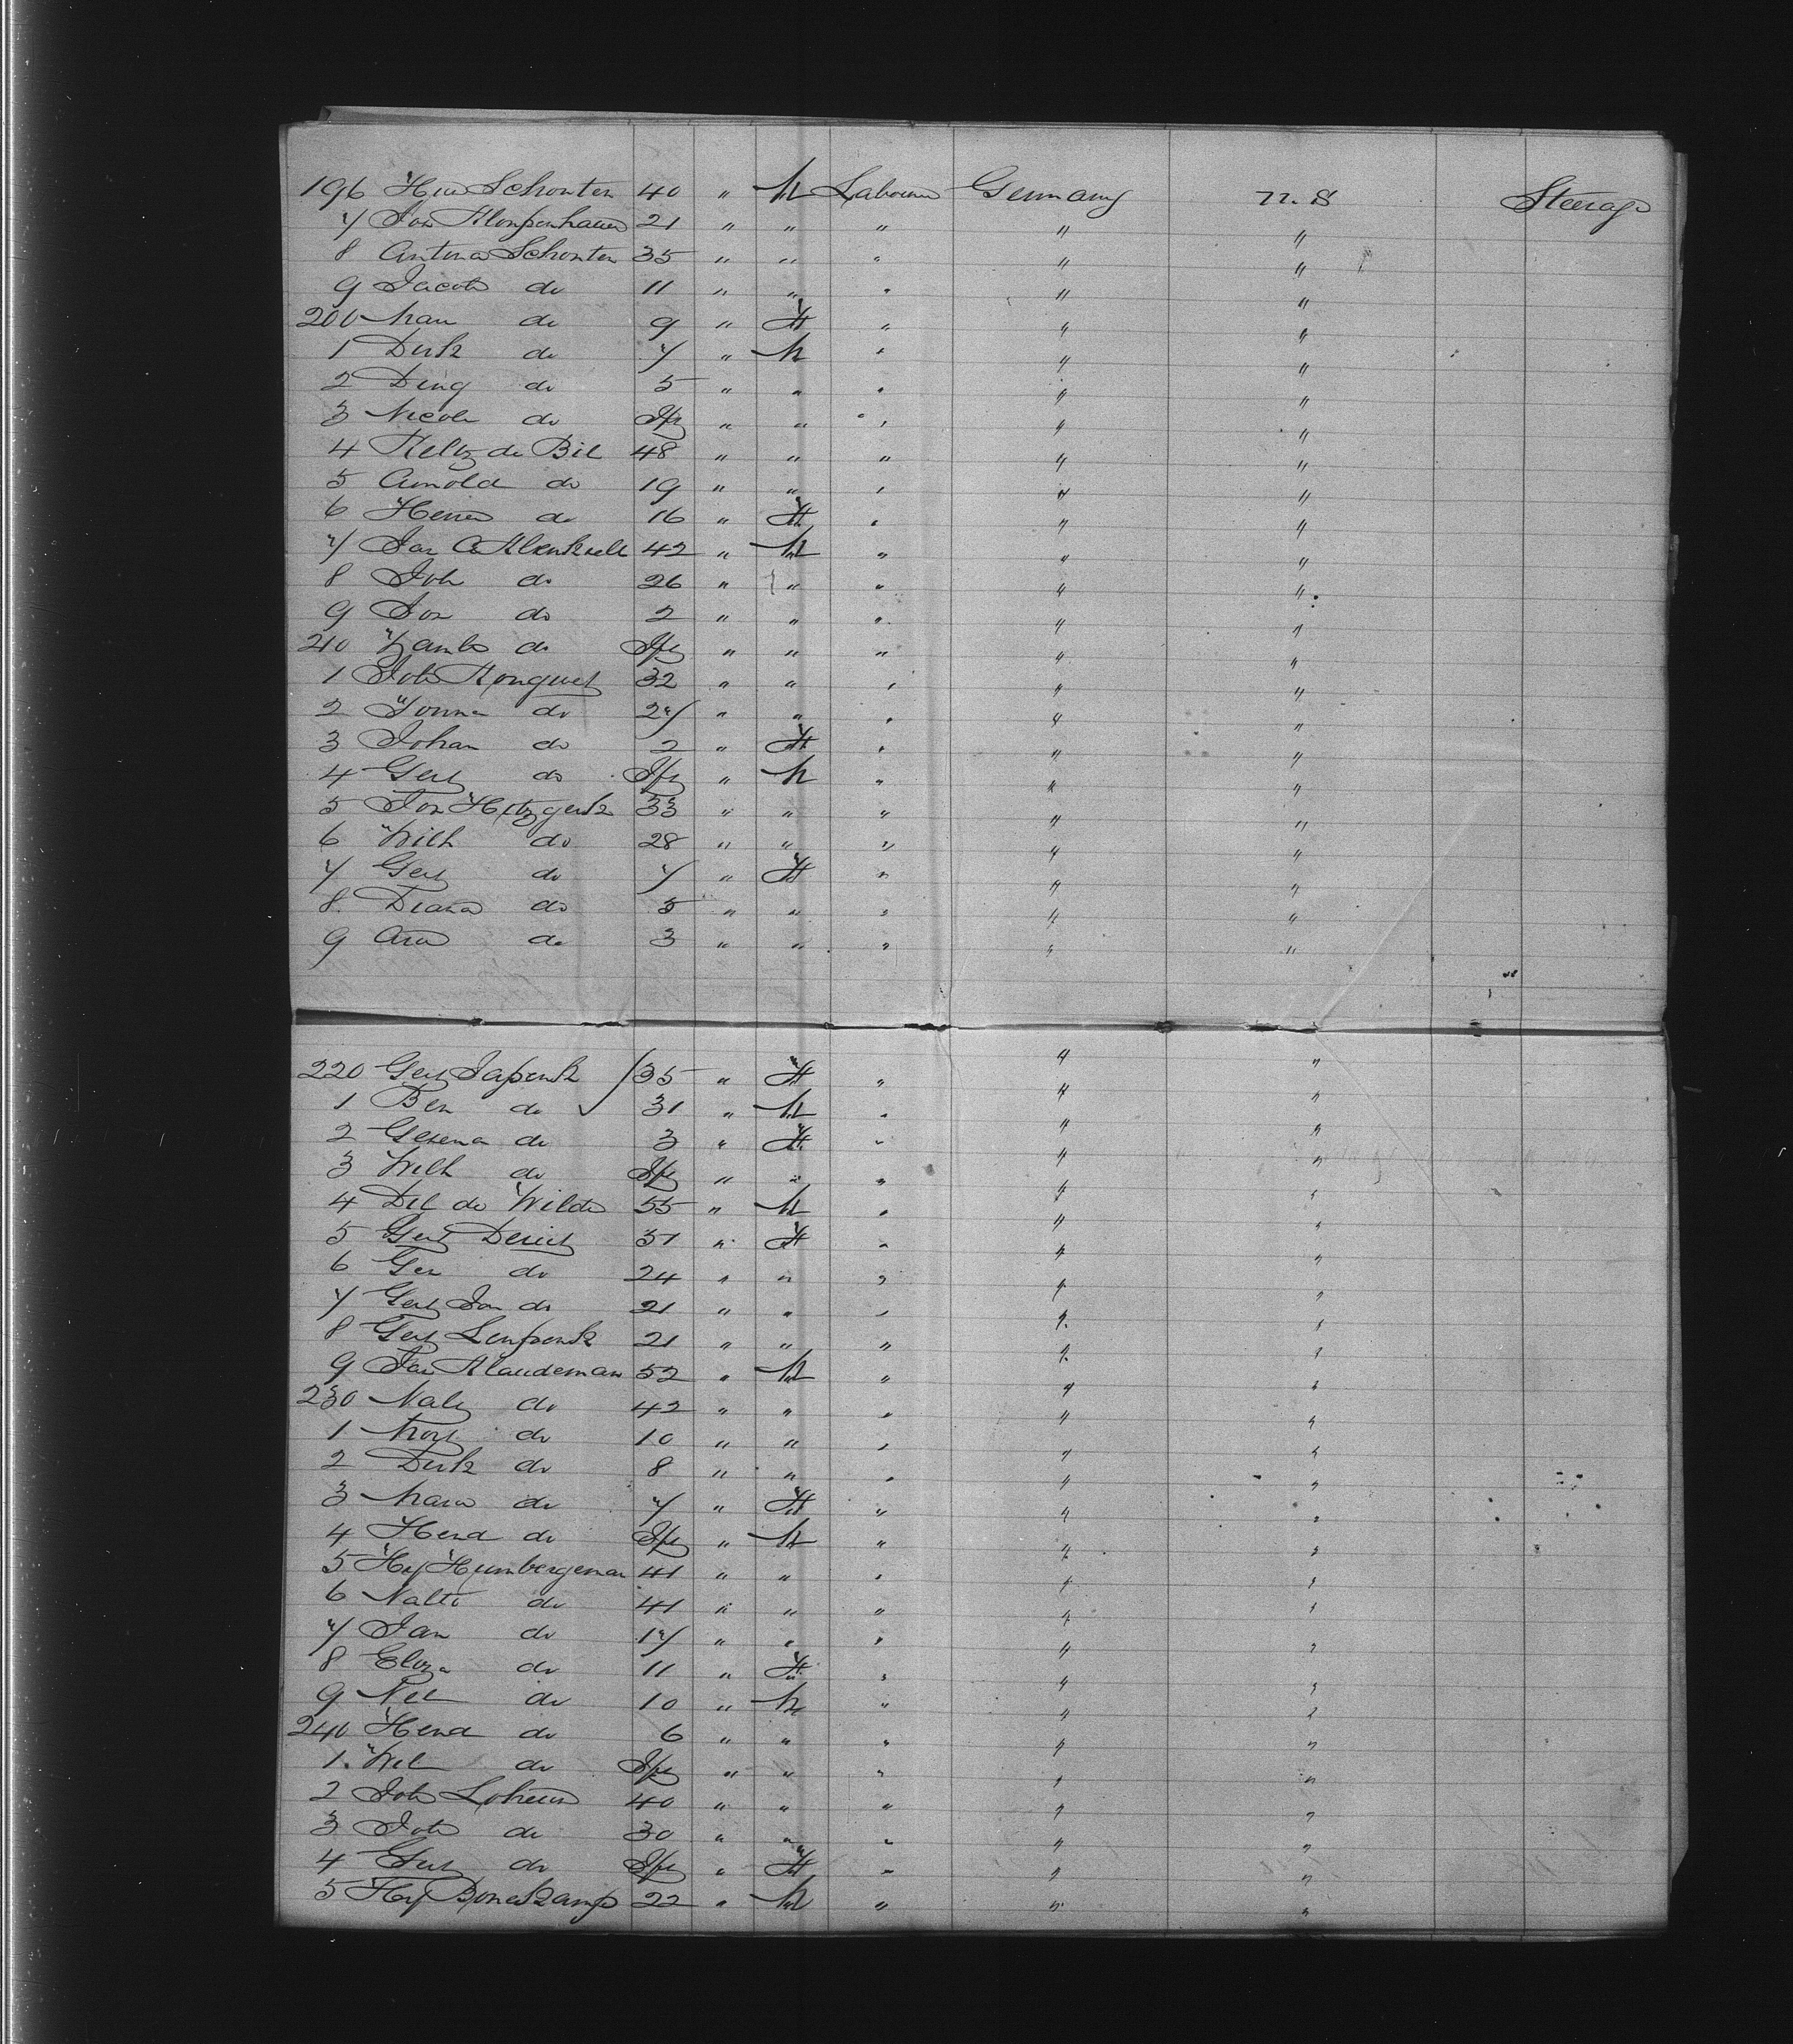 196 Hen Schonten 40 " M Labourer Germany U.S Steerage
7 Jan Klompenhauer 21 " " " " "
8 Antona Schonten 35 " " " " "
9 Jacob do 11 " " " " "
200 Mar do 9 " F " " "
1 Derk do 7 " M " " "
2 Ding do 5 " " " " "
3 Nicola do Inf " " " " "
4 de Bil 48 " " " " "
5 Arnold do 19 " " " " "
6 do 16 " F " " "
7 Jan 42 " M " " "
8 Joh do 26 " " " " "
9 Jan do 2 " " " " "
210 do Inf " " " " "
1 Joh 32 " " " " "
2 do 27 " " " " "
3 Johan do 2 " F " " "
4 Gert do Inf " M " " "
5 Jan 33 " " " " "
6 Wilh do 28 " " " " "
7 Gert do 7 " F " " "
8 Diana do 5 " " " " "
9 do 3 " " " " "
220 Gert Japenk 35 " F " " "
1 Ben do 31 " M " " "
2 Gesena do 3 " F " " "
3 Wilh do Inf " " " " "
4 de Wilde 55 " M " " "
5 Gert 31 " F " " "
6 Ger do 24 " " " " "
7 Gert Jan do 21 " " " " "
8 Gert Lenponk 21 " " " " "
9 Jan Klaudeman 52 " M " " "
230 do 42 " " " " "
1 do 10 " " " " "
2 Derk do 8 " " " " "
3 Mara do 7 " F " " "
4 Hend do Inf " M " " "
5 Hy Humbergeman 41 " " " " "
6 Nalte do 41 " " " " "
7 Jan do 17 " " " " "
8 Eliza do 11 " F " " "
9 do 10 " M " " "
240 Hend do 6 " " " " "
1 Wil do Inf " " " " "
2 Joh 40 " " " " "
3 Joh do 30 " " " " "
4 Gert do Inf " F " " "
5 Hy Boneskamp 22 " M " " "